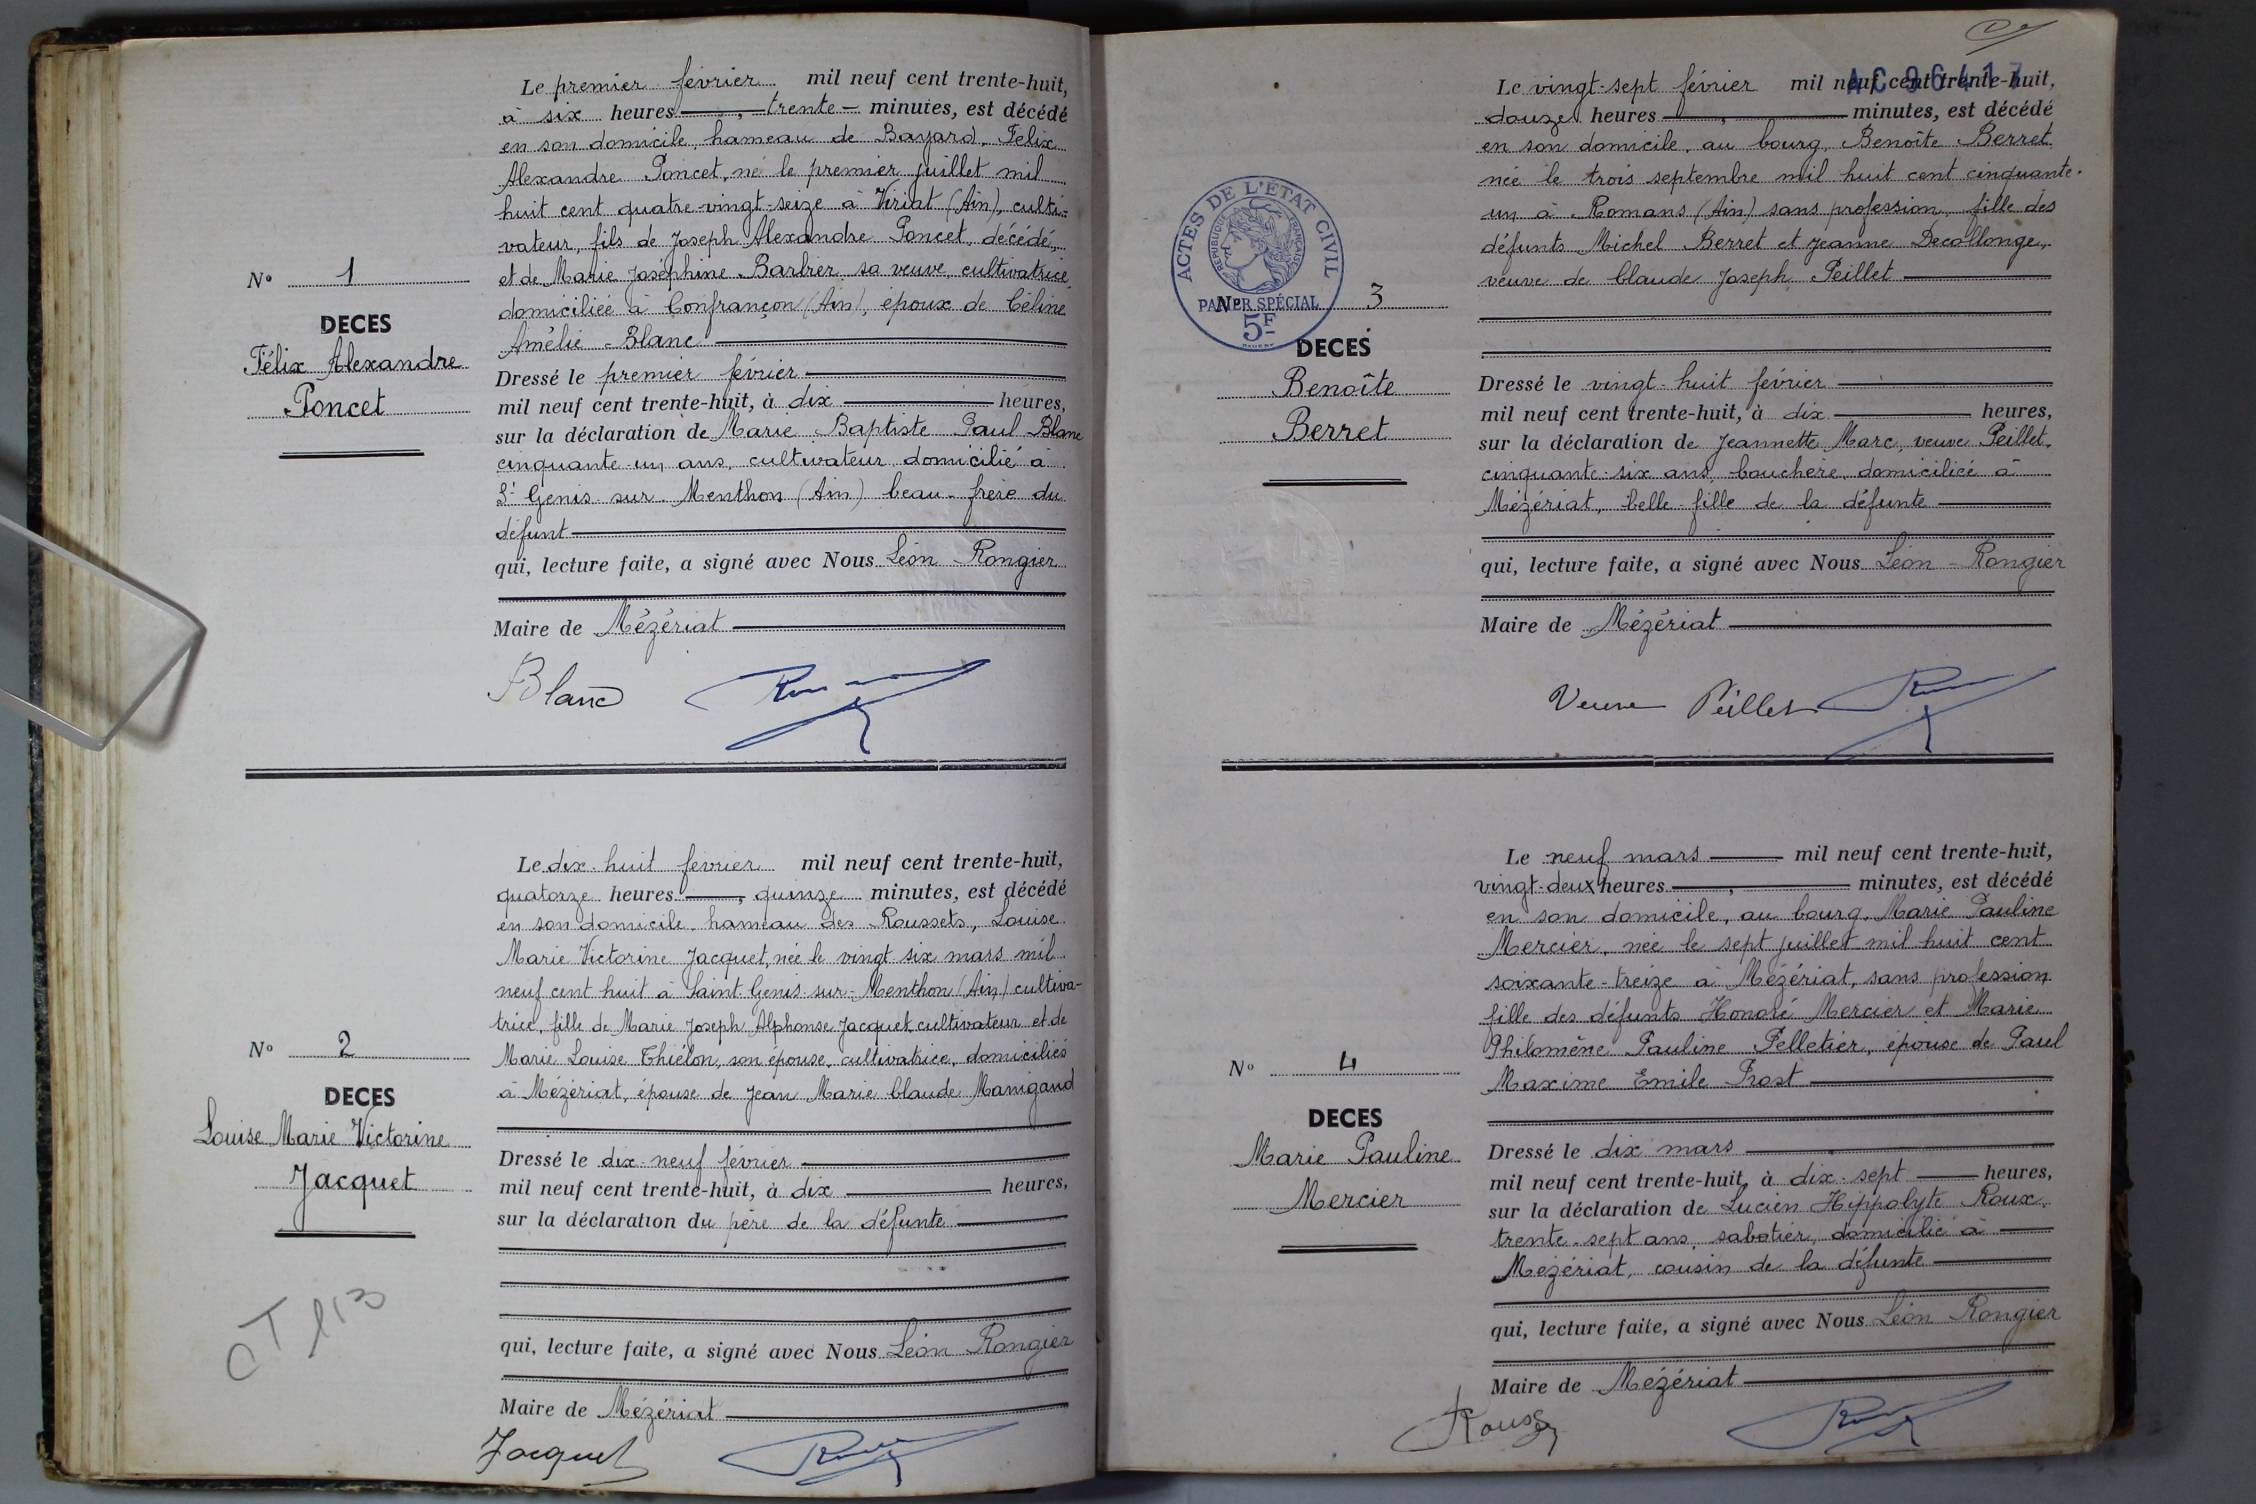 Le premier février mil neuf cent trente-huit,
à six heures, trente minutes, est décédé
en son domicile, hameau de Bayard, Félix
Alexandre Poncet, né le premier juillet mil
huit cent quatre-vingt-seize à Viriat (Ain), culti-
vateur, fils de Joseph Alexandre Poncet, décédé,
et de Marie Joséphine Barbier sa veuve, cultivatrice
domiciliée à Confrançon (Ain), époux de Céline
Amélie Blanc
Nº 1
DECES
Félix Alexandre
Poncet
Dressé le premier février
mil neuf cent trente-huit, à dix heures,
sur la déclaration de Marie Baptiste Paul Blanc
cinquante-un ans, cultivateur domicilié à
St Genis-sur-Menthon (Ain) beau-frère du
défunt
qui, lecture faite, a signé avec Nous Léon Rongier
Maire de Mézériat
Blanc
Le dix-huit février mil neuf cent trente-huit,
quatorze heures, quinze minutes, est décédé
en son domicile, hameau des Roussets, Louise
Marie Victorine Jacquet, née le vingt six mars mil
neuf cent huit à Saint-Genis-sur-Menthon (Ain) cultiva-
trice, fille de Marie Joseph Alphonse Jacquet, cultivateur et de
Marie Louise Thiélon, son épouse, cultivatrice, domiciliés
à Mézériat, épouse de Jean Marie Claude Manigand
Nº 2
DECES
Louise Marie Victorine
Jacquet
Dressé le dix-neuf février
mil neuf cent trente-huit, à dix heures,
sur la déclaration du père de la défunte
qui, lecture faite, a signé avec Nous Léon Rongier
Maire de Mézériat
Jacquet
AC 96417
Le vingt-sept février mil neuf cent trente-huit,
douze heures, minutes, est décédé
en son domicile, au bourg, Benoîte Berret
née le trois septembre mil huit cent cinquante-
un à Romans (Ain) sans profession, fille des
défunts Michel Berret et Jeanne Decollonge,
veuve de Claude Joseph Peillet
ACTES DE L'ETAT CIVIL
REPUBLIQUE FRANÇAISE
PAPIER SPÉCIAL
5F
Nº 3
DECES
Benoîte
Berret
Dressé le vingt-huit février
mil neuf cent trente-huit, à dix heures,
sur la déclaration de Jeannette Marc, veuve Peillet,
cinquante-six ans, bouchère, domiciliée à
Mézériat, belle-fille de la défunte
qui, lecture faite, a signé avec Nous Léon Rongier
Maire de Mézériat
Veuve Peillet
Le neuf mars mil neuf cent trente-huit,
vingt-deux heures, minutes, est décédé
en son domicile, au bourg, Marie Pauline
Mercier, née le sept juillet mil huit cent
soixante-treize à Mézériat, sans profession
fille des défunts Honoré Mercier et Marie
Philomène Pauline Pelletier, épouse de Paul
Maxime Emile Prost
Nº 4
DECES
Marie Pauline
Mercier
Dressé le dix mars
mil neuf cent trente-huit, à dix-sept heures,
sur la déclaration de Lucien Hippolyte Roux,
trente-sept ans, sabotier, domicilié à
Mézériat, cousin de la défunte
qui, lecture faite, a signé avec Nous Léon Rongier
Maire de Mézériat